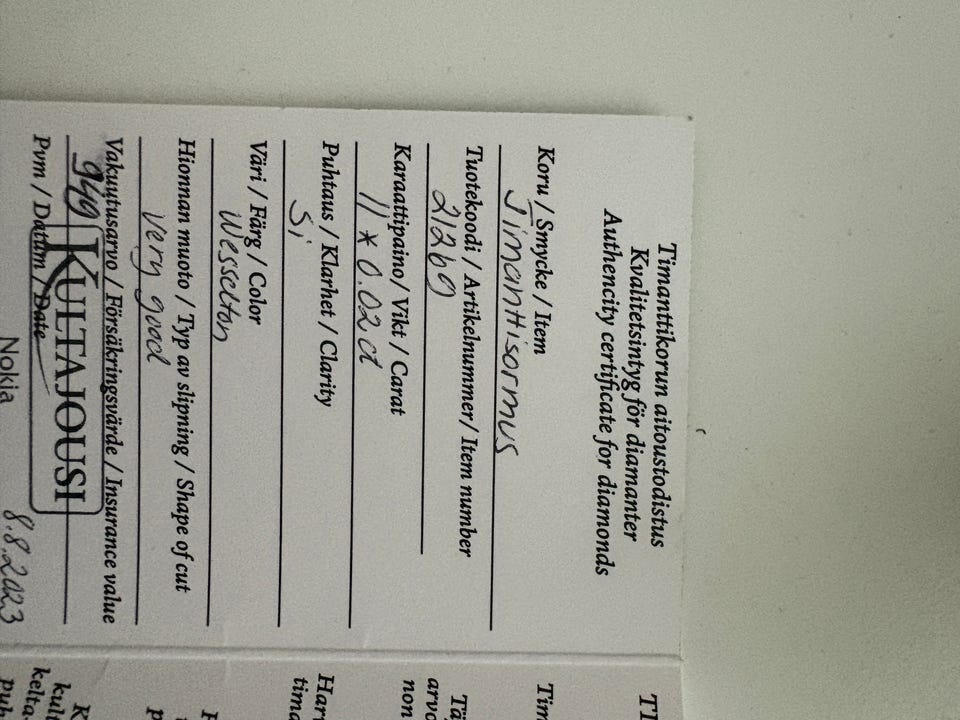 Timanttikorun aitoustodistus
Kvalitetsintyg för diamanter
Authencity certificate for diamonds
Koru / Smycke / Item
Timanttisormus
Tuotekoodi / Artikelnummer / Item number
21269
Karaattipaino / Vikt / Carat
11 * 0.02 ct
Puhtaus / Klarhet / Clarity
Si
Väri / Färg / Color
Wesselton
Hionnan muoto / Typ av slipning / Shape of cut
Very good
Vakuutusarvo / Försäkringsvärde / Insurance value
949
KULTAJOUSI
Pvm / Datum / Date
Nokia 8.8.2023